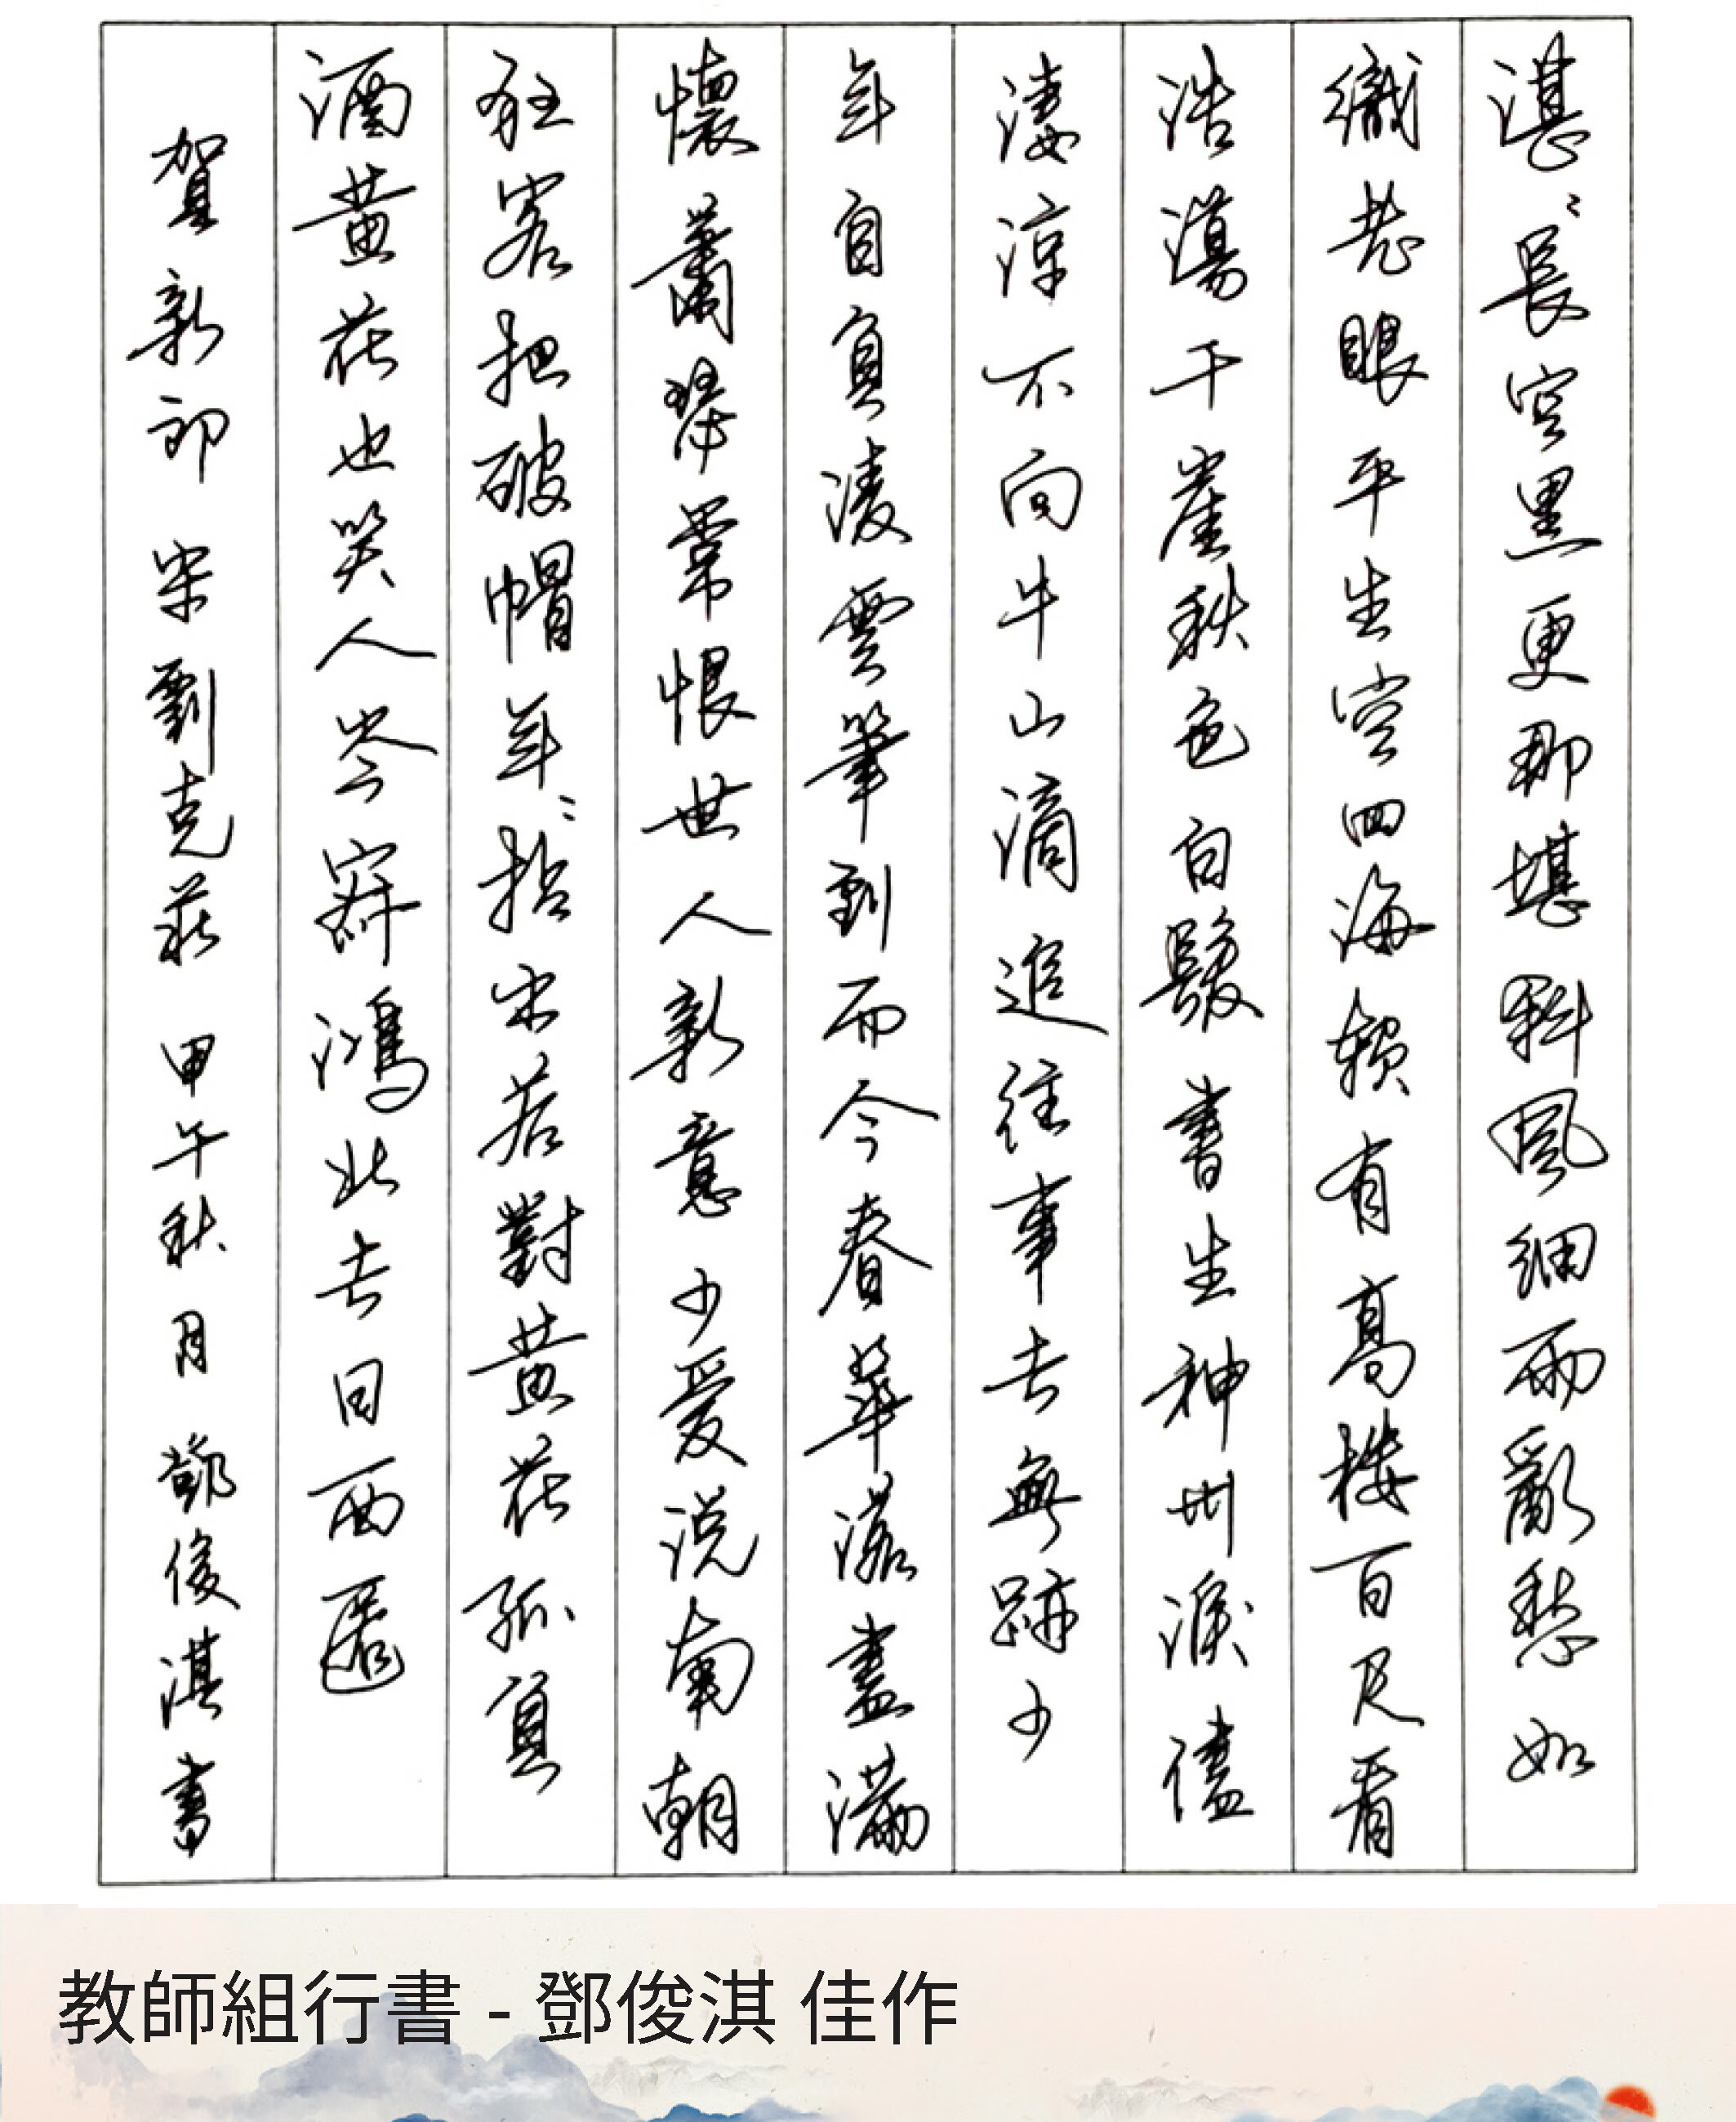 湛〻長空黑更那堪斜風細雨亂愁如
織老眼平生空四海賴有高樓百尺看
浩蕩千崖秋色白髮書生神州淚儘
淒涼不向牛山滴追往事去無跡少
年自負淩雲筆到而今春華落盡滿
懷蕭瑟常恨世人新意少愛説南朝
狂客把破帽年〻拈出若對黃花孤負
酒黃花也笑人岑寂鴻北去日西匿
賀新郎 宋劉克莊 甲午秋月 鄧俊淇書
教師組行書 - 鄧俊淇 佳作